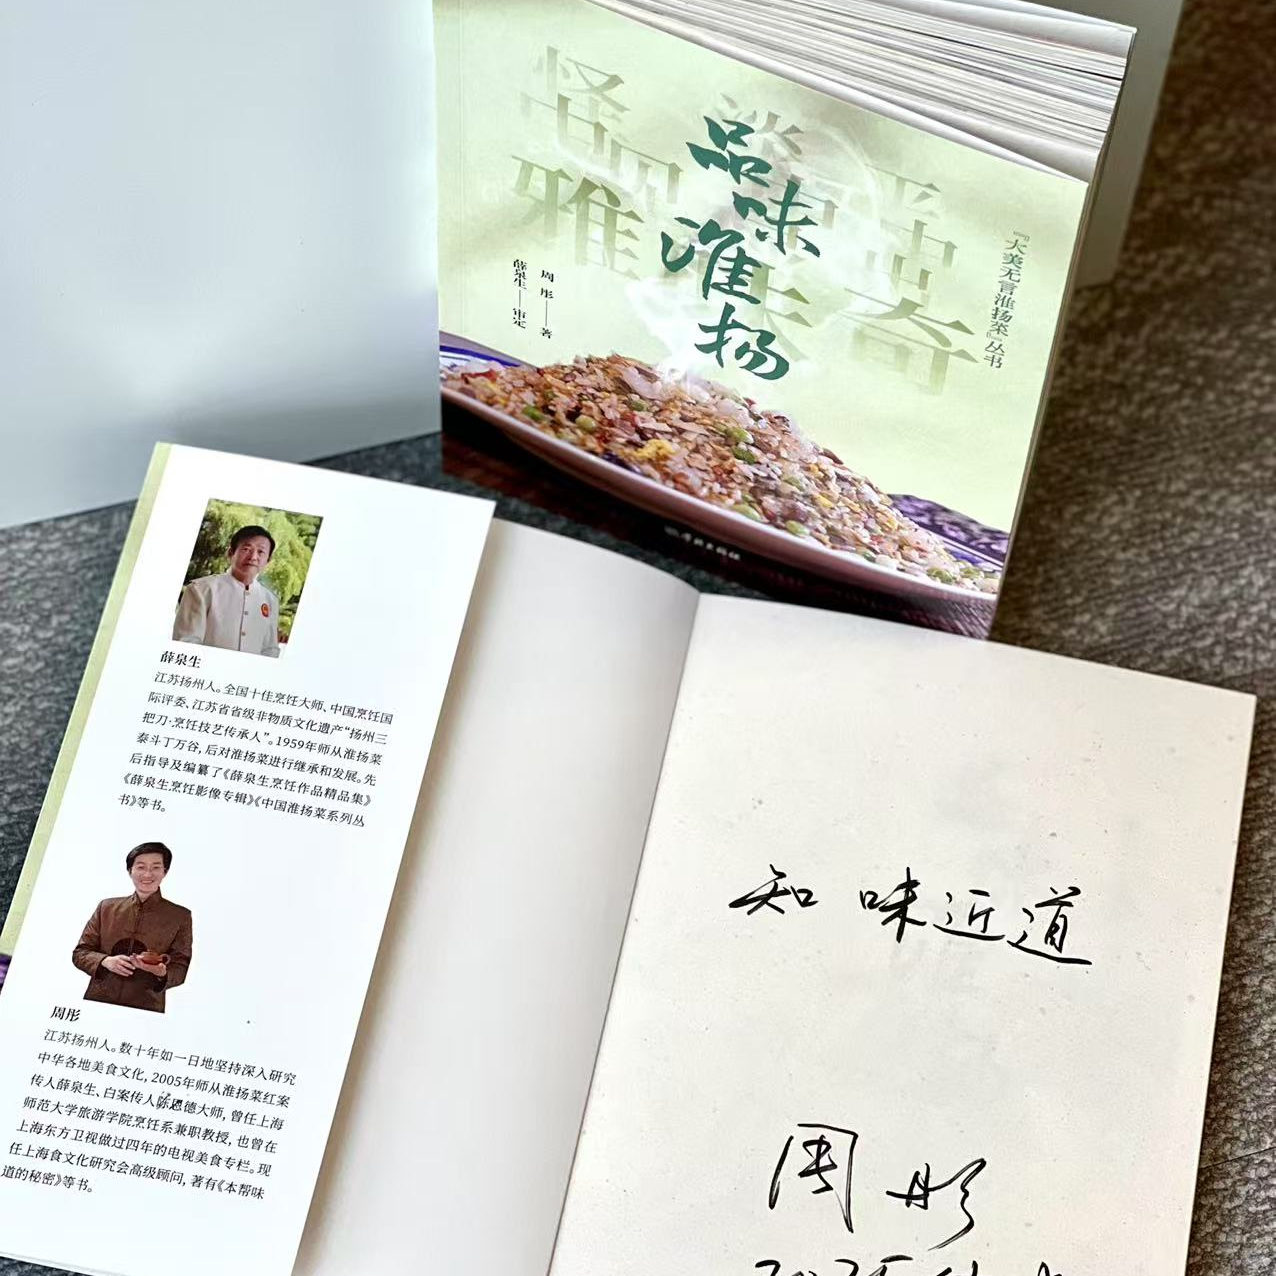 品味淮扬
“大美无言淮扬菜”丛书
周彤——著
薛泉生——审定
薛泉生
江苏扬州人。全国十佳烹饪大师、中国烹饪国
际评委、江苏省省级非物质文化遗产“扬州三
把刀·烹饪技艺传承人”。1959年师从淮扬菜
泰斗丁万谷,后对淮扬菜进行继承和发展。先
后指导及编纂了《薛泉生烹饪作品精品集》
《薛泉生烹饪影像专辑》《中国淮扬菜系列丛
书》等书。
周彤
江苏扬州人。数十年如一日地坚持深入研究
中华各地美食文化,2005年师从淮扬菜红案
传人薛泉生、白案传人陈恩德大师,曾任上海
师范大学旅游学院烹饪系兼职教授,也曾在
上海东方卫视做过四年的电视美食专栏。现
任上海食文化研究会高级顾问,著有《本帮味
道的秘密》等书。
知味近道
周彤